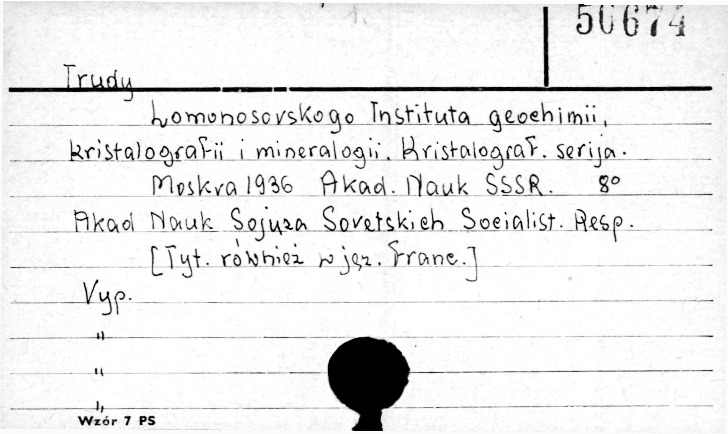 50674
Trudy
Lomonosovskogo Instituta geochimii,
kristalografii i mineralogii. Kristalograf. serija.
Moskva 1936 Akad. Nauk SSSR. 8°
Akad Nauk Sojuza Sovetskich Socialist. Resp.
[Tyt. również w jęz. franc.]
Vyp.
"
"
"
Wzór 7 PS